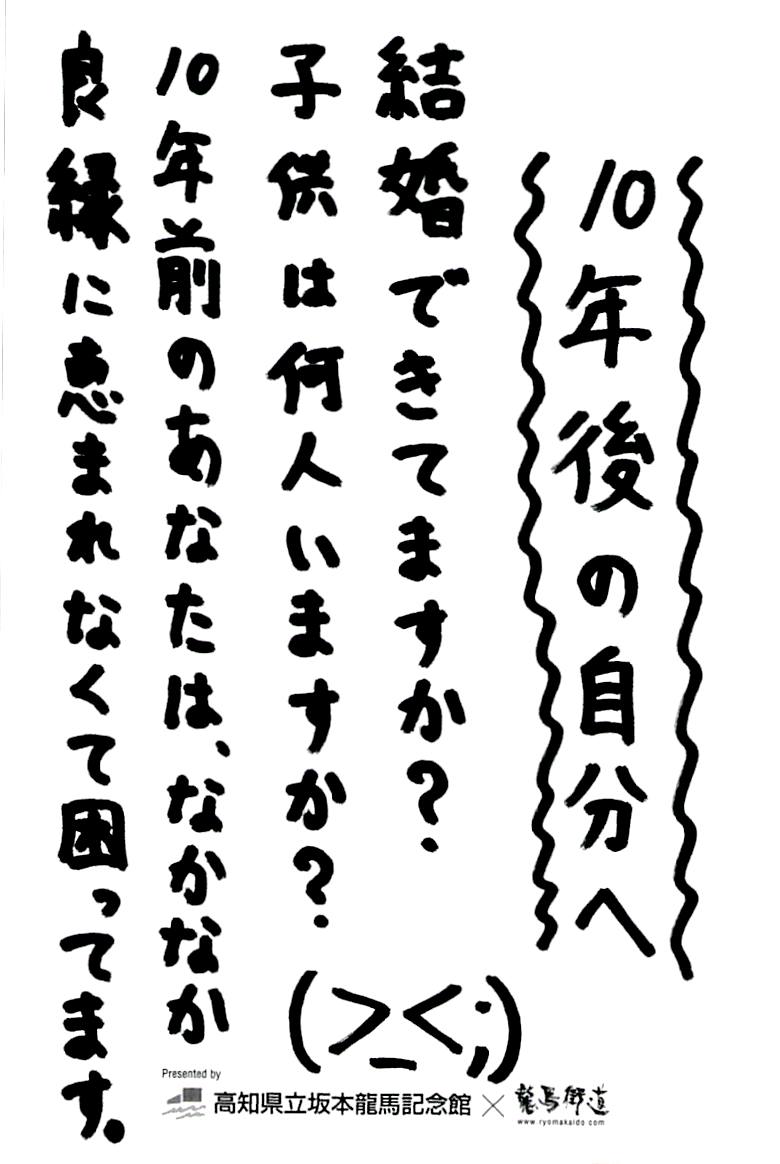 10年後の自分へ
結婚できてますか?
子供は何人いますか?
(>_<;)
10年前のあなたは、なかなか
良縁に恵まれなくて困ってます。
Presented by
高知県立坂本龍馬記念館×龍馬街道
www.ryomakaido.com